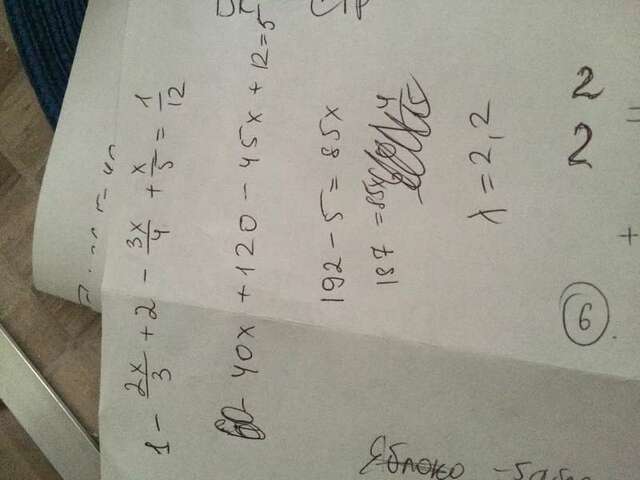 1 - 2x/3 + 2 - 3x/4 + x/5 = 1/12
60 - 40x + 120 - 45x + 12 = 5
192 - 5 = 85x
187 = 85x
x = 2,2
2
2
6
Яблоко